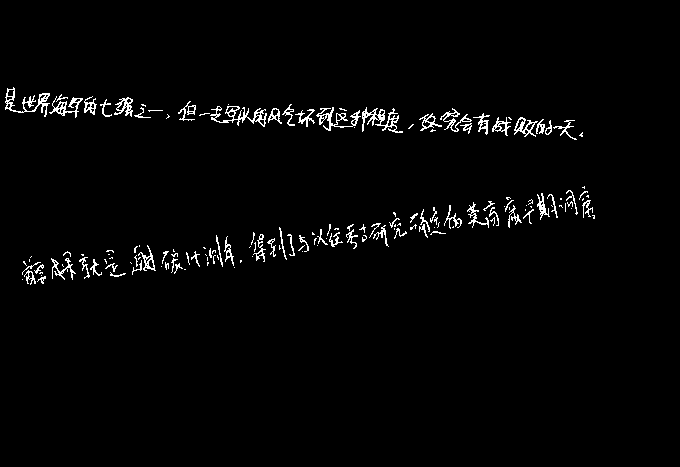 是世界海军的七强之一,但一支军队的风气坏到这种程度,终究会有战败的一天。
成果就是通过碳十测年,得到了与以往考古研究确定的莫高窟早期洞窟